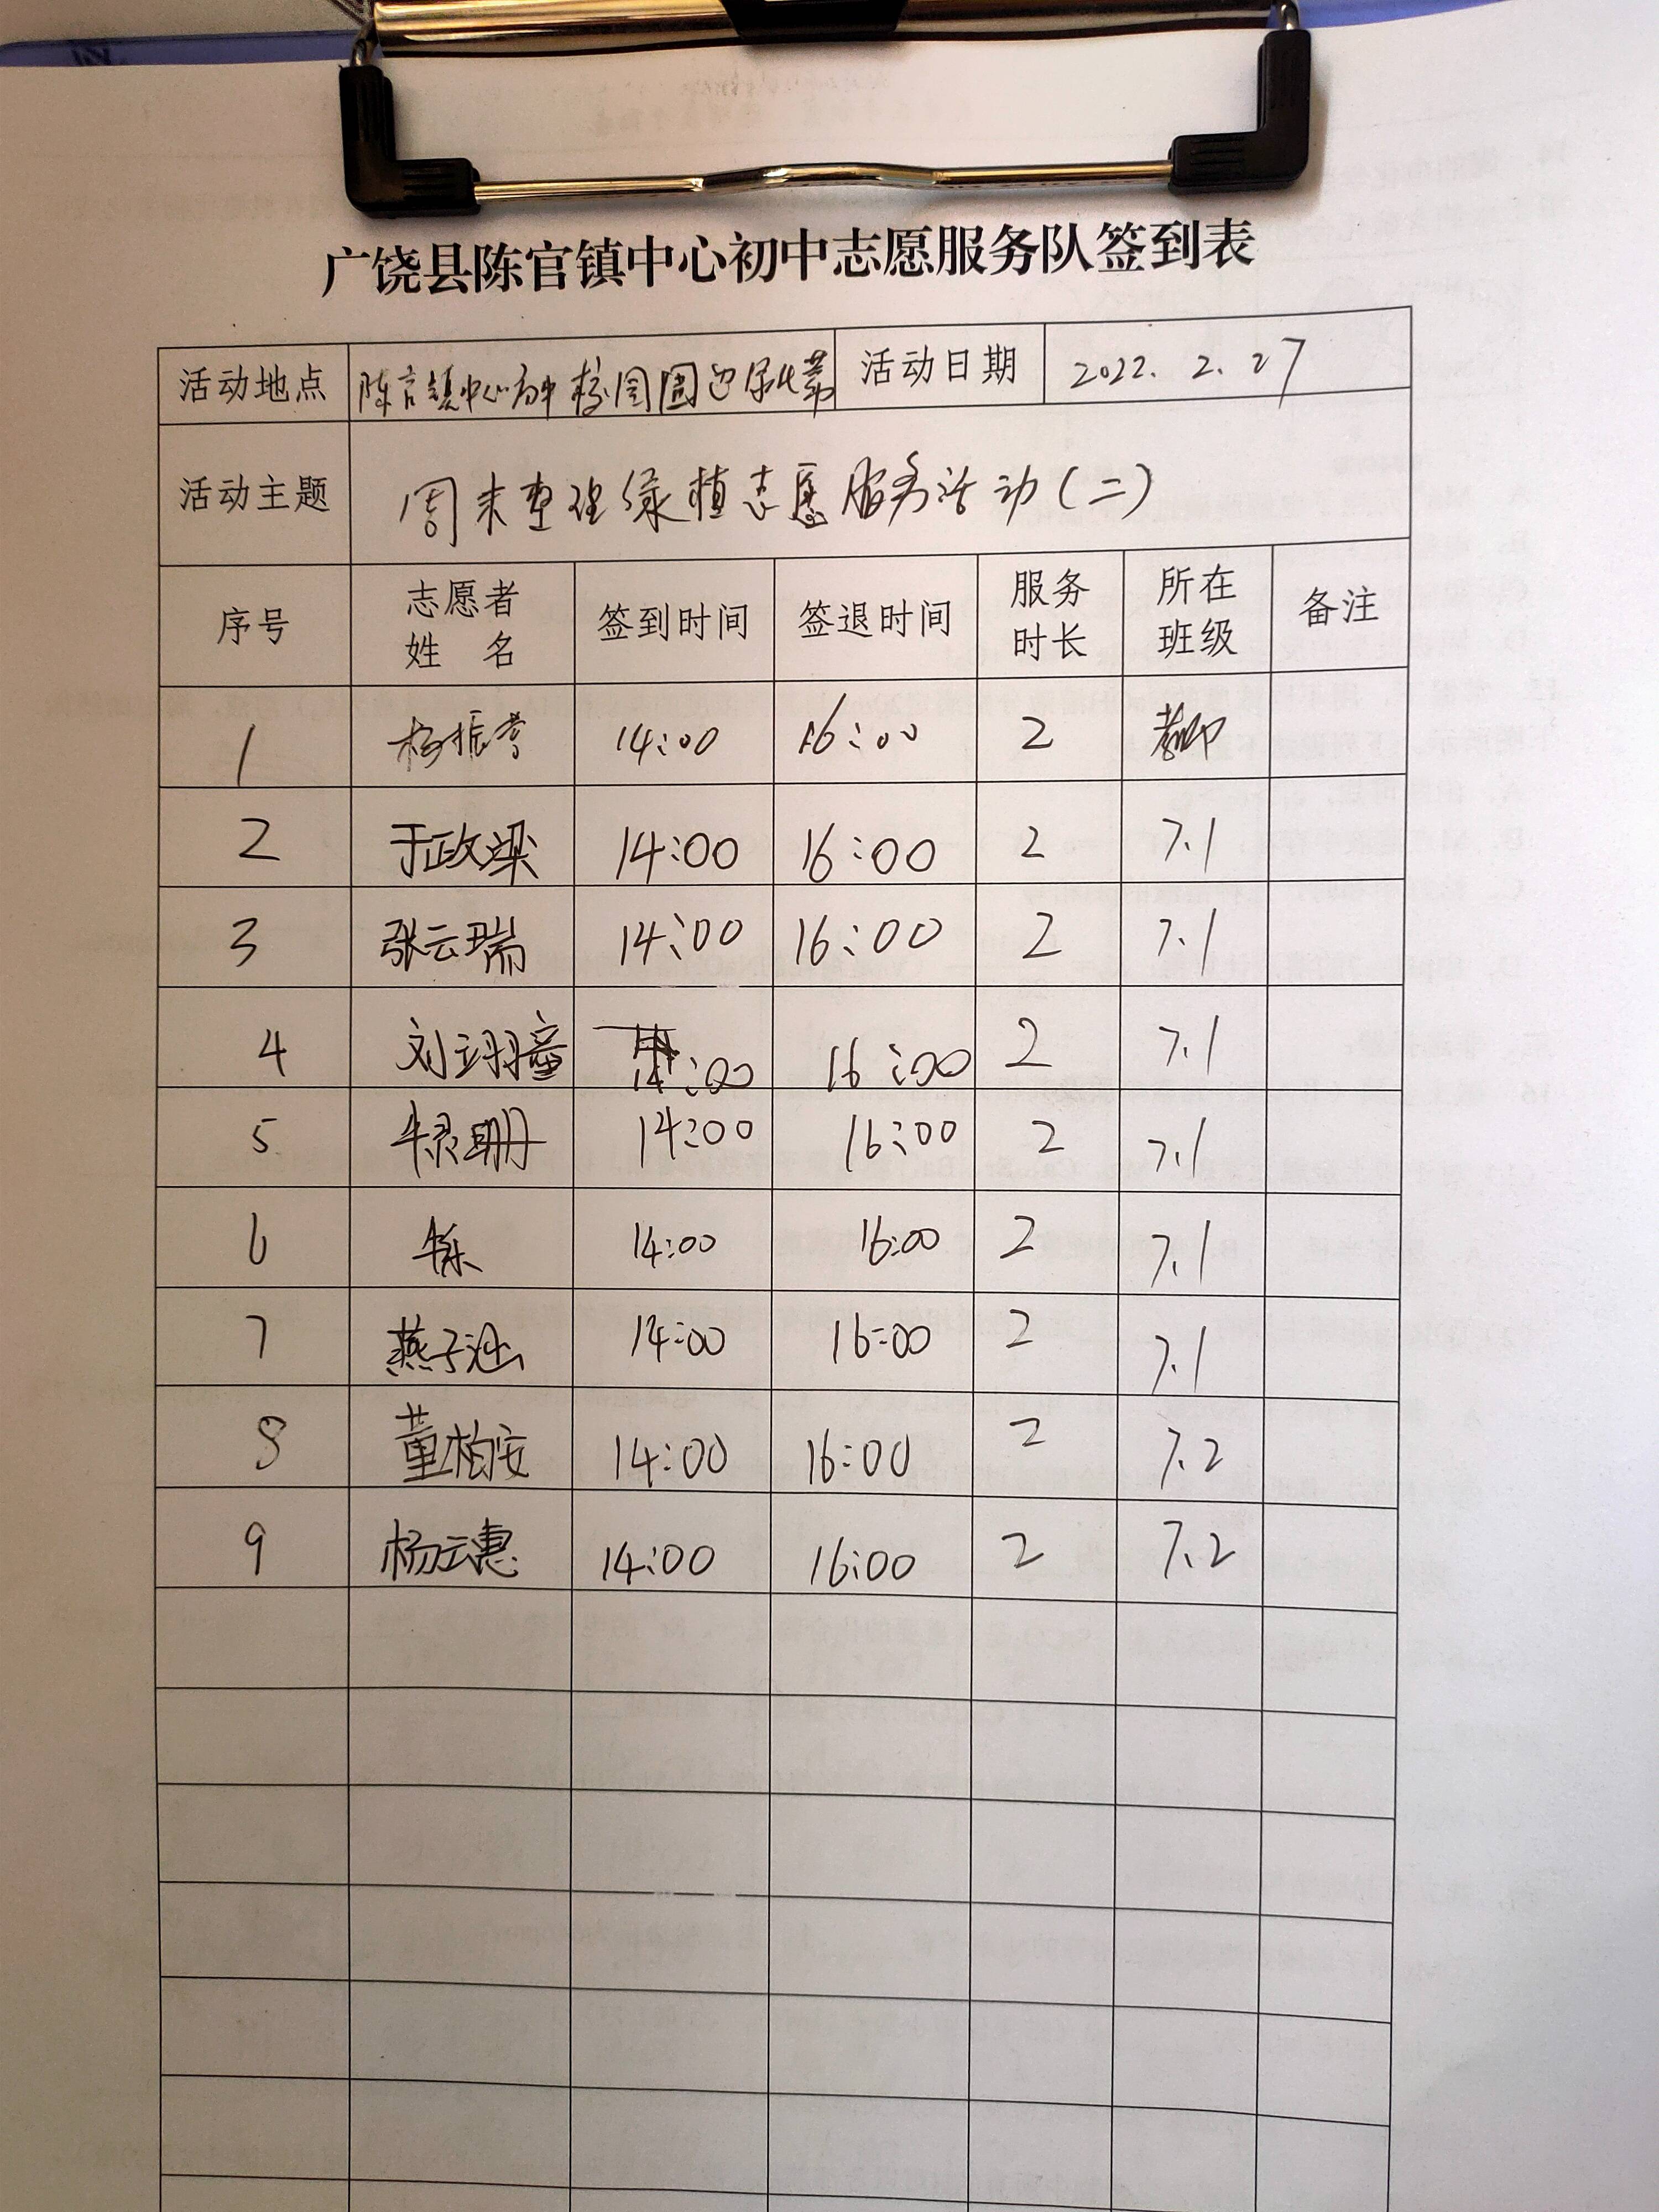 广饶县陈官镇中心初中志愿服务队签到表
活动地点 陈官镇中心初中校园周边绿化带 活动日期 2022.2.27
活动主题 周末整理绿植志愿服务活动(二)
序号 志愿者姓名 签到时间 签退时间 服务时长 所在班级 备注
1 杨振 14:00 16:00 2 教师
2 于政梁 14:00 16:00 2 7.1
3 张云瑞 14:00 16:00 2 7.1
4 刘翊童 14:00 16:00 2 7.1
5 珊 14:00 16:00 2 7.1
6 14:00 16:00 2 7.1
7 燕子涵 14:00 16:00 2 7.1
8 董柏安 14:00 16:00 2 7.2
9 杨云惠 14:00 16:00 2 7.2